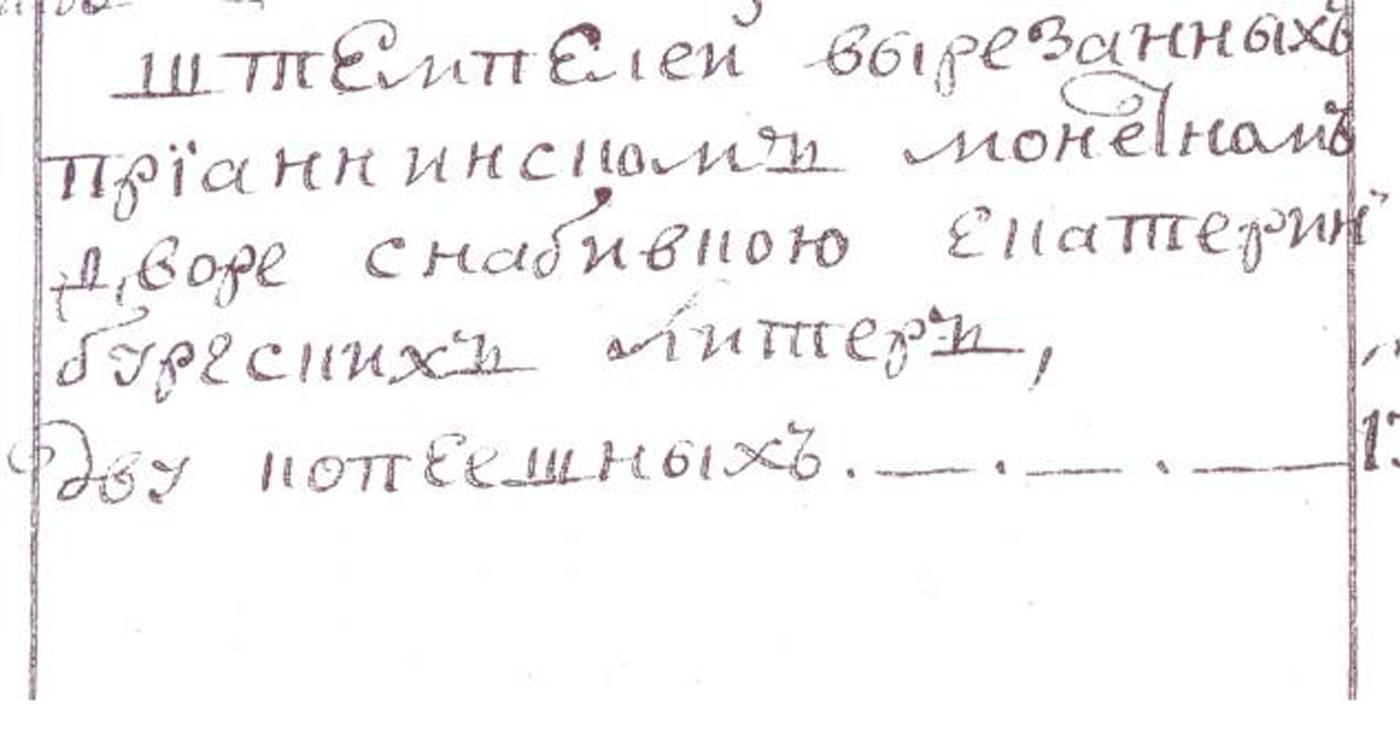 штемпелей вырезанныхъ
пріаннинскомъ монетномъ
дворе снабивкою екатерин
бургскихъ литеръ,
дву копеешныхъ. — . — . —